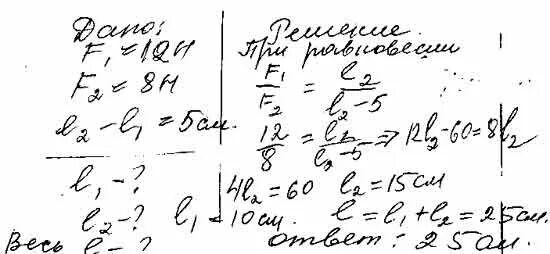 Дано:
F₁ = 12Н
F₂ = 8Н
l₂ - l₁ = 5см.
l₁ - ?
l₂ - ?
Весь l - ?
Решение.
При равновесии
F₁/F₂ = l₂/(l₂-5)
12/8 = l₂/(l₂-5) => 12l₂-60=8l₂
4l₂=60 l₂=15см
l₁=10см. l=l₁+l₂=25см.
ответ: 25см.